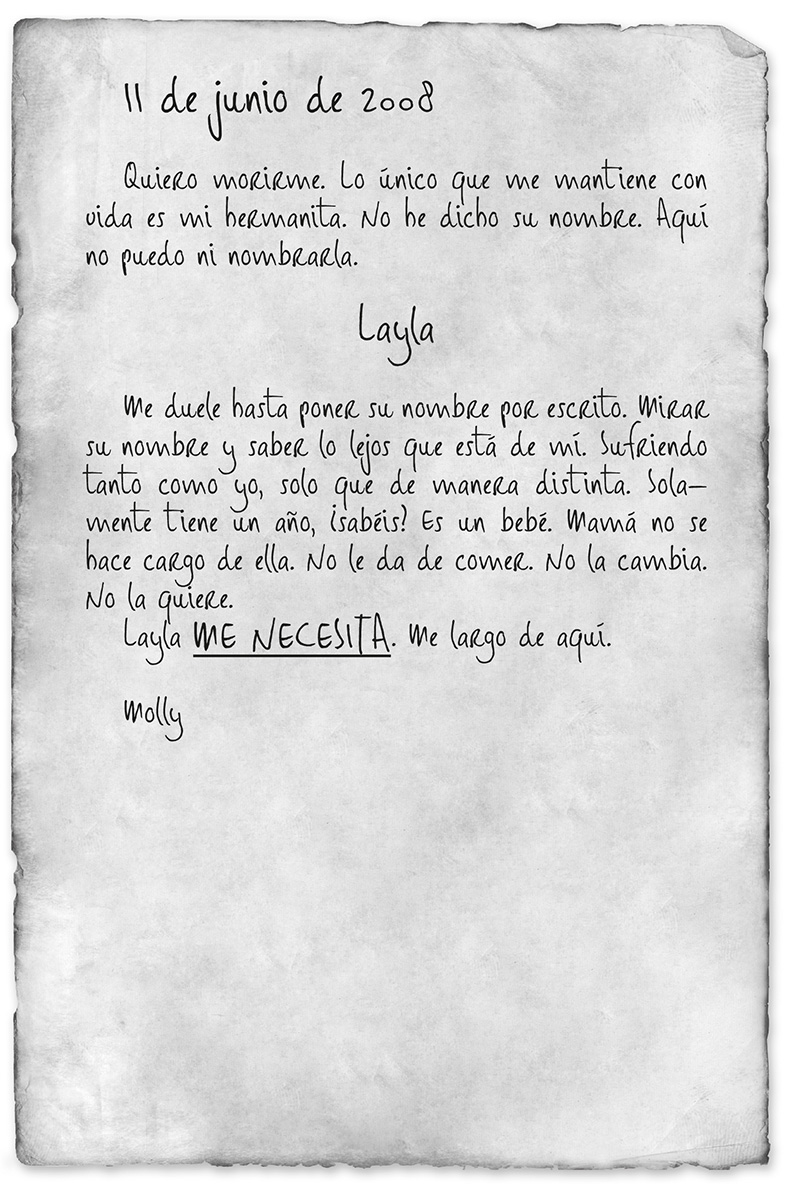 11 de junio de 2008
Quiero morirme. Lo único que me mantiene con
vida es mi hermanita. No he dicho su nombre. Aquí
no puedo ni nombrarla.
Layla
Me duele hasta poner su nombre por escrito. Mirar
su nombre y saber lo lejos que está de mí. Sufriendo
tanto como yo, solo que de manera distinta. Sola-
mente tiene un año, ¿sabéis? Es un bebé. Mamá no se
hace cargo de ella. No le da de comer. No la cambia.
No la quiere.
Layla ME NECESITA. Me largo de aquí.
Molly